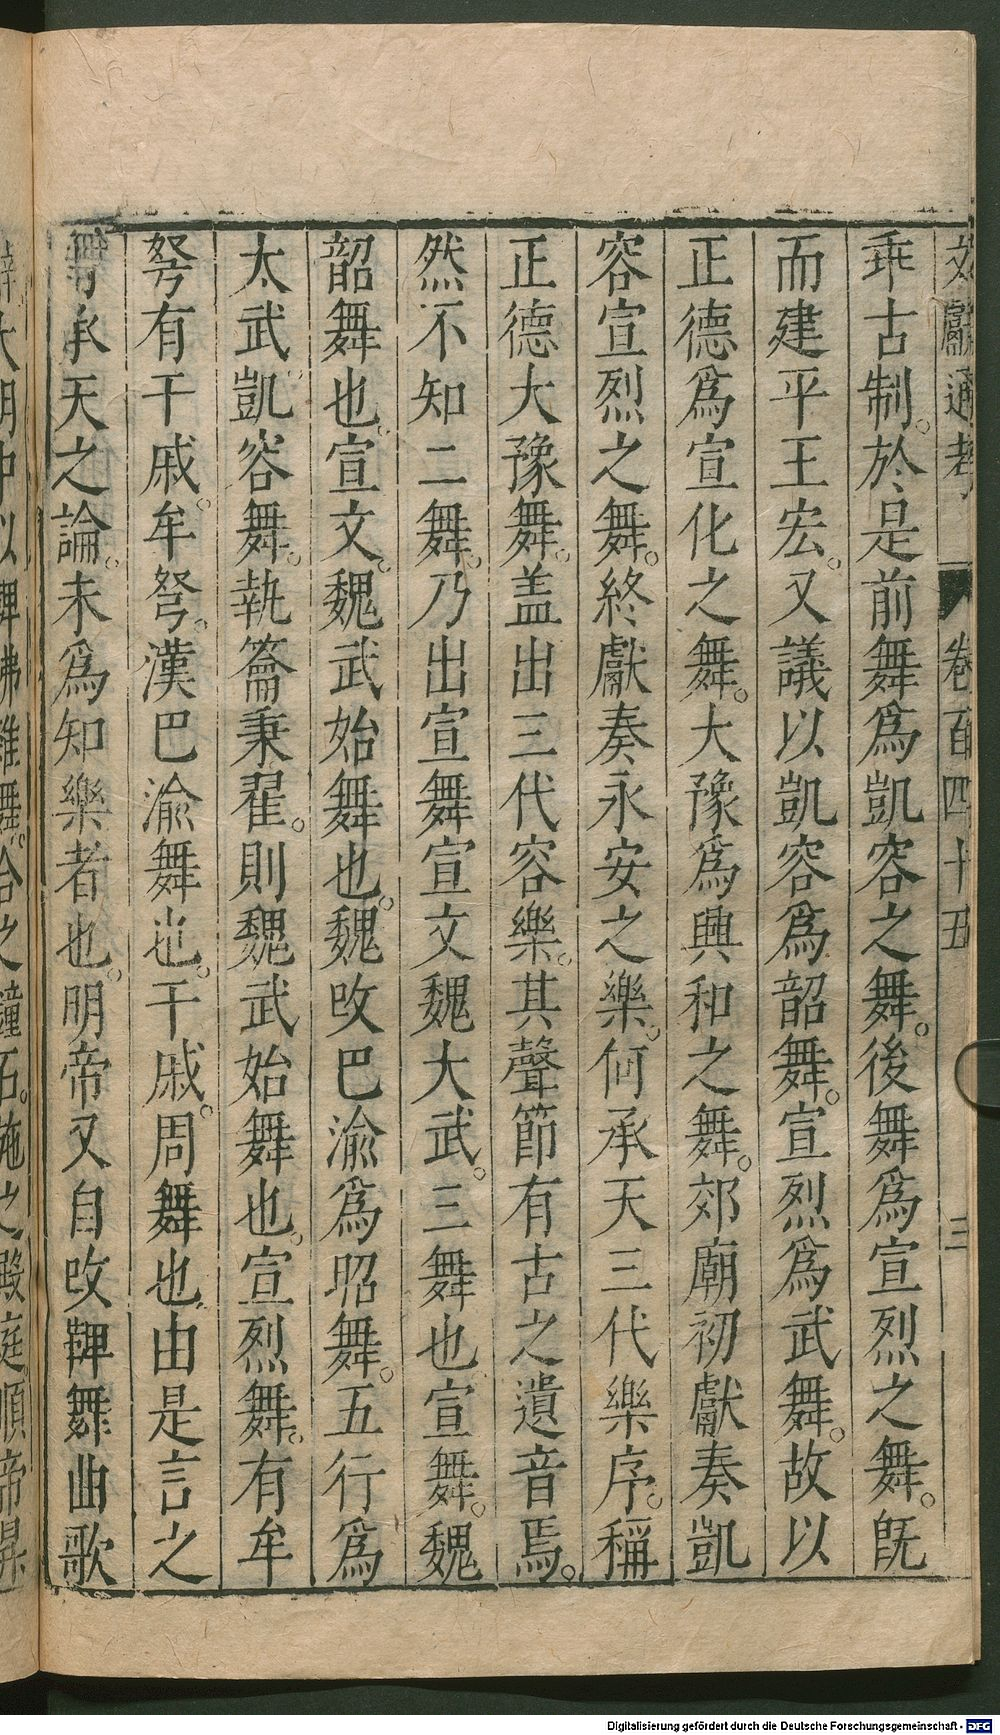 文獻通考 卷百四十五 三
乖古制。於是前舞爲凱容之舞。後舞爲宣烈之舞。旣
而建平王宏。又議以凱容爲韶舞。宣烈爲武舞。故以
正德爲宣化之舞。大豫爲興和之舞。郊廟初獻奏凱
容宣烈之舞。終獻奏永安之樂。何承天三代樂序。稱
正德大豫舞。盖出三代容樂。其聲節有古之遺音焉。
然不知二舞。乃出宣舞宣文魏大武。三舞也宣舞。魏
韶舞也。宣文。魏武始舞也。魏改巴渝爲昭舞。五行爲
太武凱容舞。執籥秉翟。則魏武始舞也。宣烈舞。有牟
弩有干戚。牟弩。漢巴渝舞也。干戚。周舞也。由是言之
承天之論。未爲知樂者也。明帝又自改鞞舞曲歌
大明中以鞞拂雜舞。合之鐘石。施之殿庭順帝昇
Digitalisierung gefördert durch die Deutsche Forschungsgemeinschaft - DFG